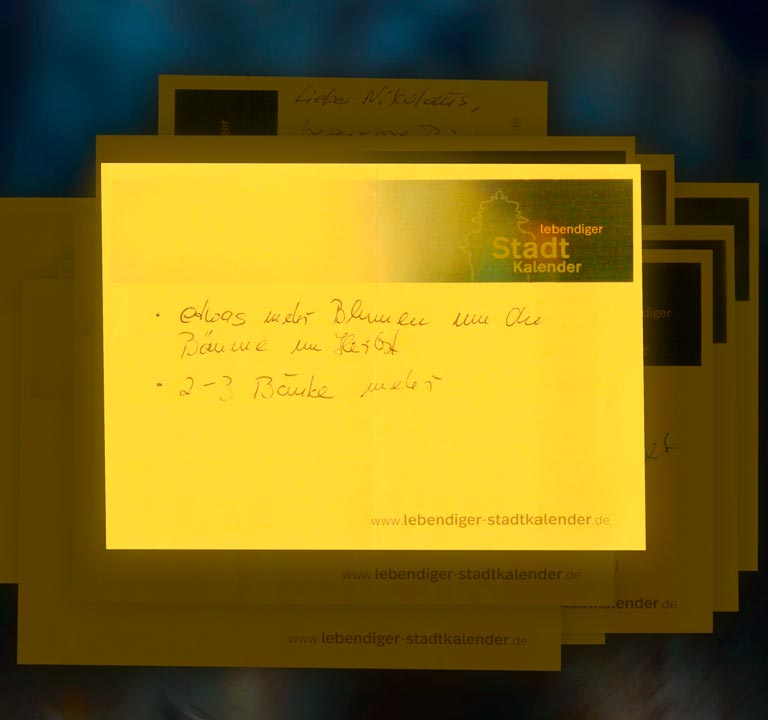 Lieber Nikolaus,
lebendiger
Stadt
Kalender
• etwas mehr Blumen um die
Bäume im Herbst
• 2-3 Bänke mehr
www.lebendiger-stadtkalender.de
www.lebendiger-stadtkalender.de
www.lebendiger-stadtkalender.de